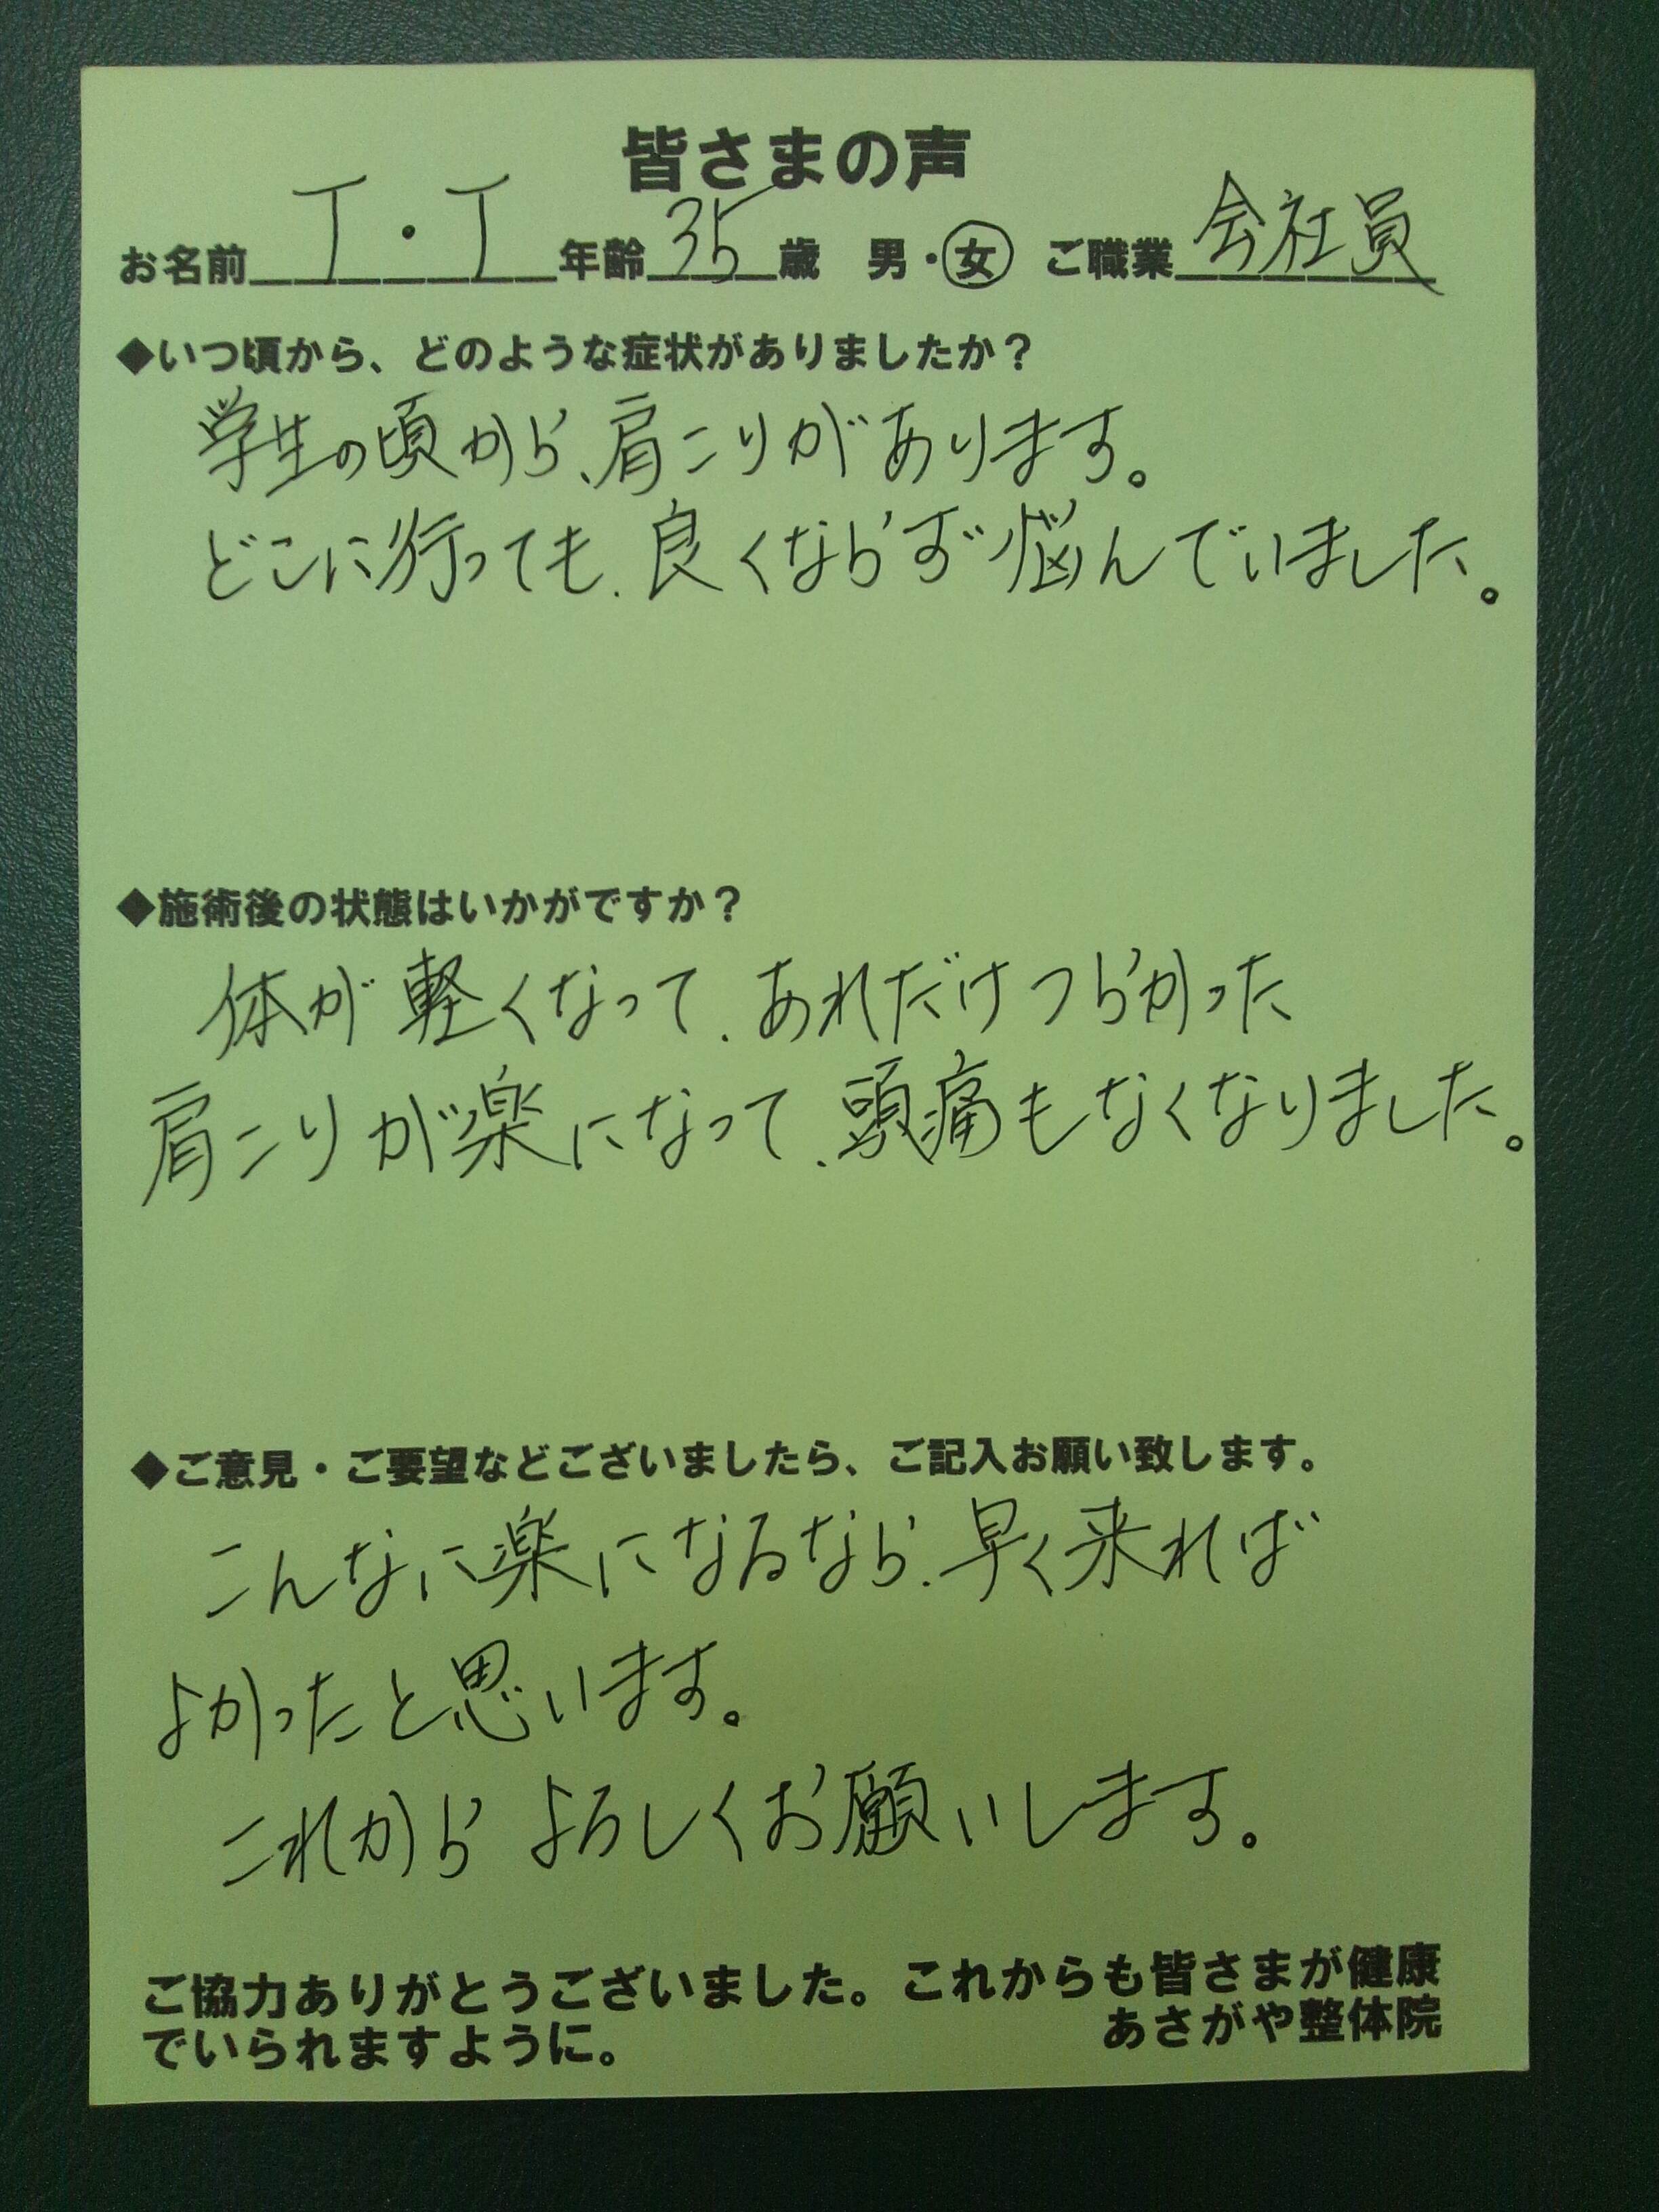 皆さまの声
お名前 T・T 年齢 35 歳 男・女 ご職業 会社員
◆いつ頃から、どのような症状がありましたか？
学生の頃から、肩こりがあります。
どこに行っても、良くならず悩んでいました。
◆施術後の状態はいかがですか？
体が軽くなって、あれだけつらかった
肩こりが楽になって、頭痛もなくなりました。
◆ご意見・ご要望などございましたら、ご記入お願い致します。
こんなに楽になるなら、早く来れば
よかったと思います。
これからよろしくお願いします。
ご協力ありがとうございました。これからも皆さまが健康
でいられますように。
あさがや整体院